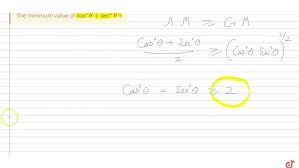 The minimum value of cos² θ + sec² θ is
A.M ≥ G.M
Cos²θ + Sec²θ / 2 ≥ (Cos²θ Sec²θ)^1/2
Cos²θ + Sec²θ ≥ 2